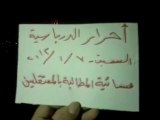 أحرار الدرباسية
السبت ٧ / ١ / ٢٠١٢
مسائية المطالبة بالمعتقلين